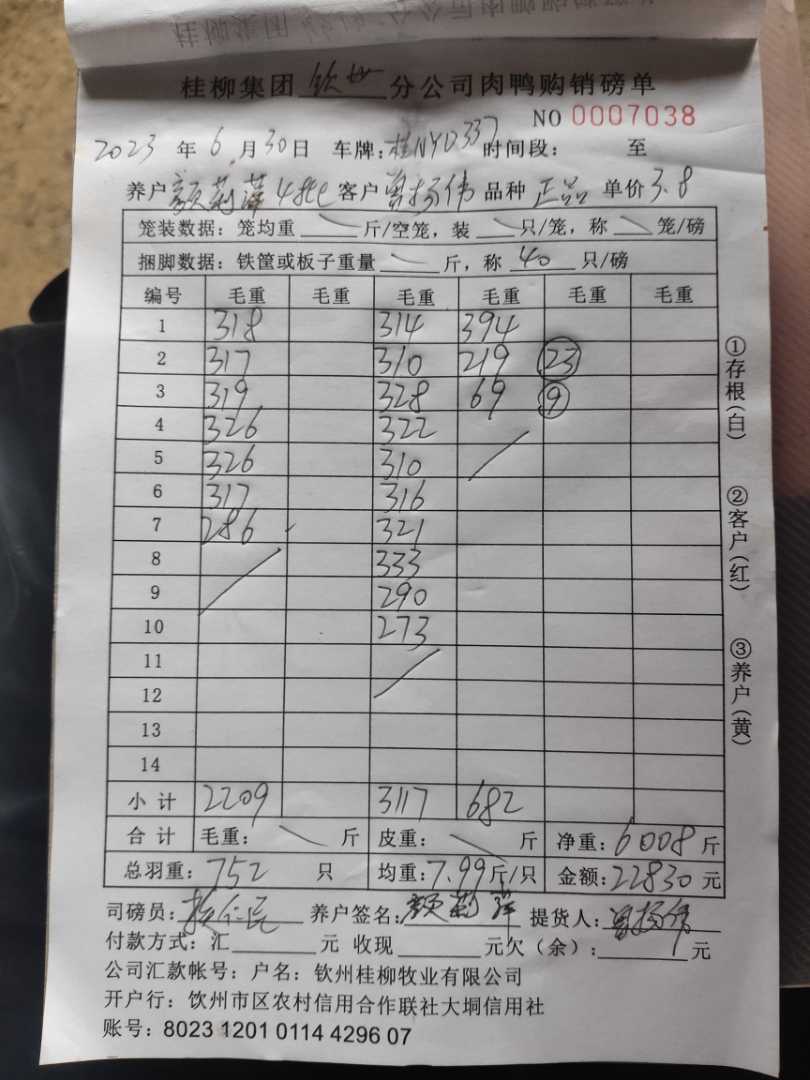 桂柳集团 钦州 分公司肉鸭购销磅单
NO 0007038
2023 年 6 月 30 日 车牌:桂NYD337 时间段: 至
养户 颜莉萍 客户 曾扬伟 品种 正品 单价 3.8
笼装数据: 笼均重 斤/空笼, 装 只/笼, 称 笼/磅
捆脚数据: 铁筐或板子重量 斤, 称 40 只/磅
编号 毛重 毛重 毛重 毛重 毛重 毛重
1 318 314 394
2 317 310 219 23
3 319 328 69 9
4 326 322
5 326 310
6 317 316
7 286 321
8 333
9 290
10 273
11
12
13
14
小计 2209 3117 682
合计 毛重: 斤 皮重: 斤 净重: 6008 斤
总羽重: 752 只 均重: 7.99 斤/只 金额: 22830 元
司磅员: 养户签名: 颜莉萍 提货人: 曾扬伟
付款方式: 汇 元 收现 元欠(余): 元
公司汇款帐号: 户名: 钦州桂柳牧业有限公司
开户行: 饮州市区农村信用合作联社大垌信用社
账号: 8023 1201 0114 4296 07
①存根(白)
②客户(红)
③养户(黄)